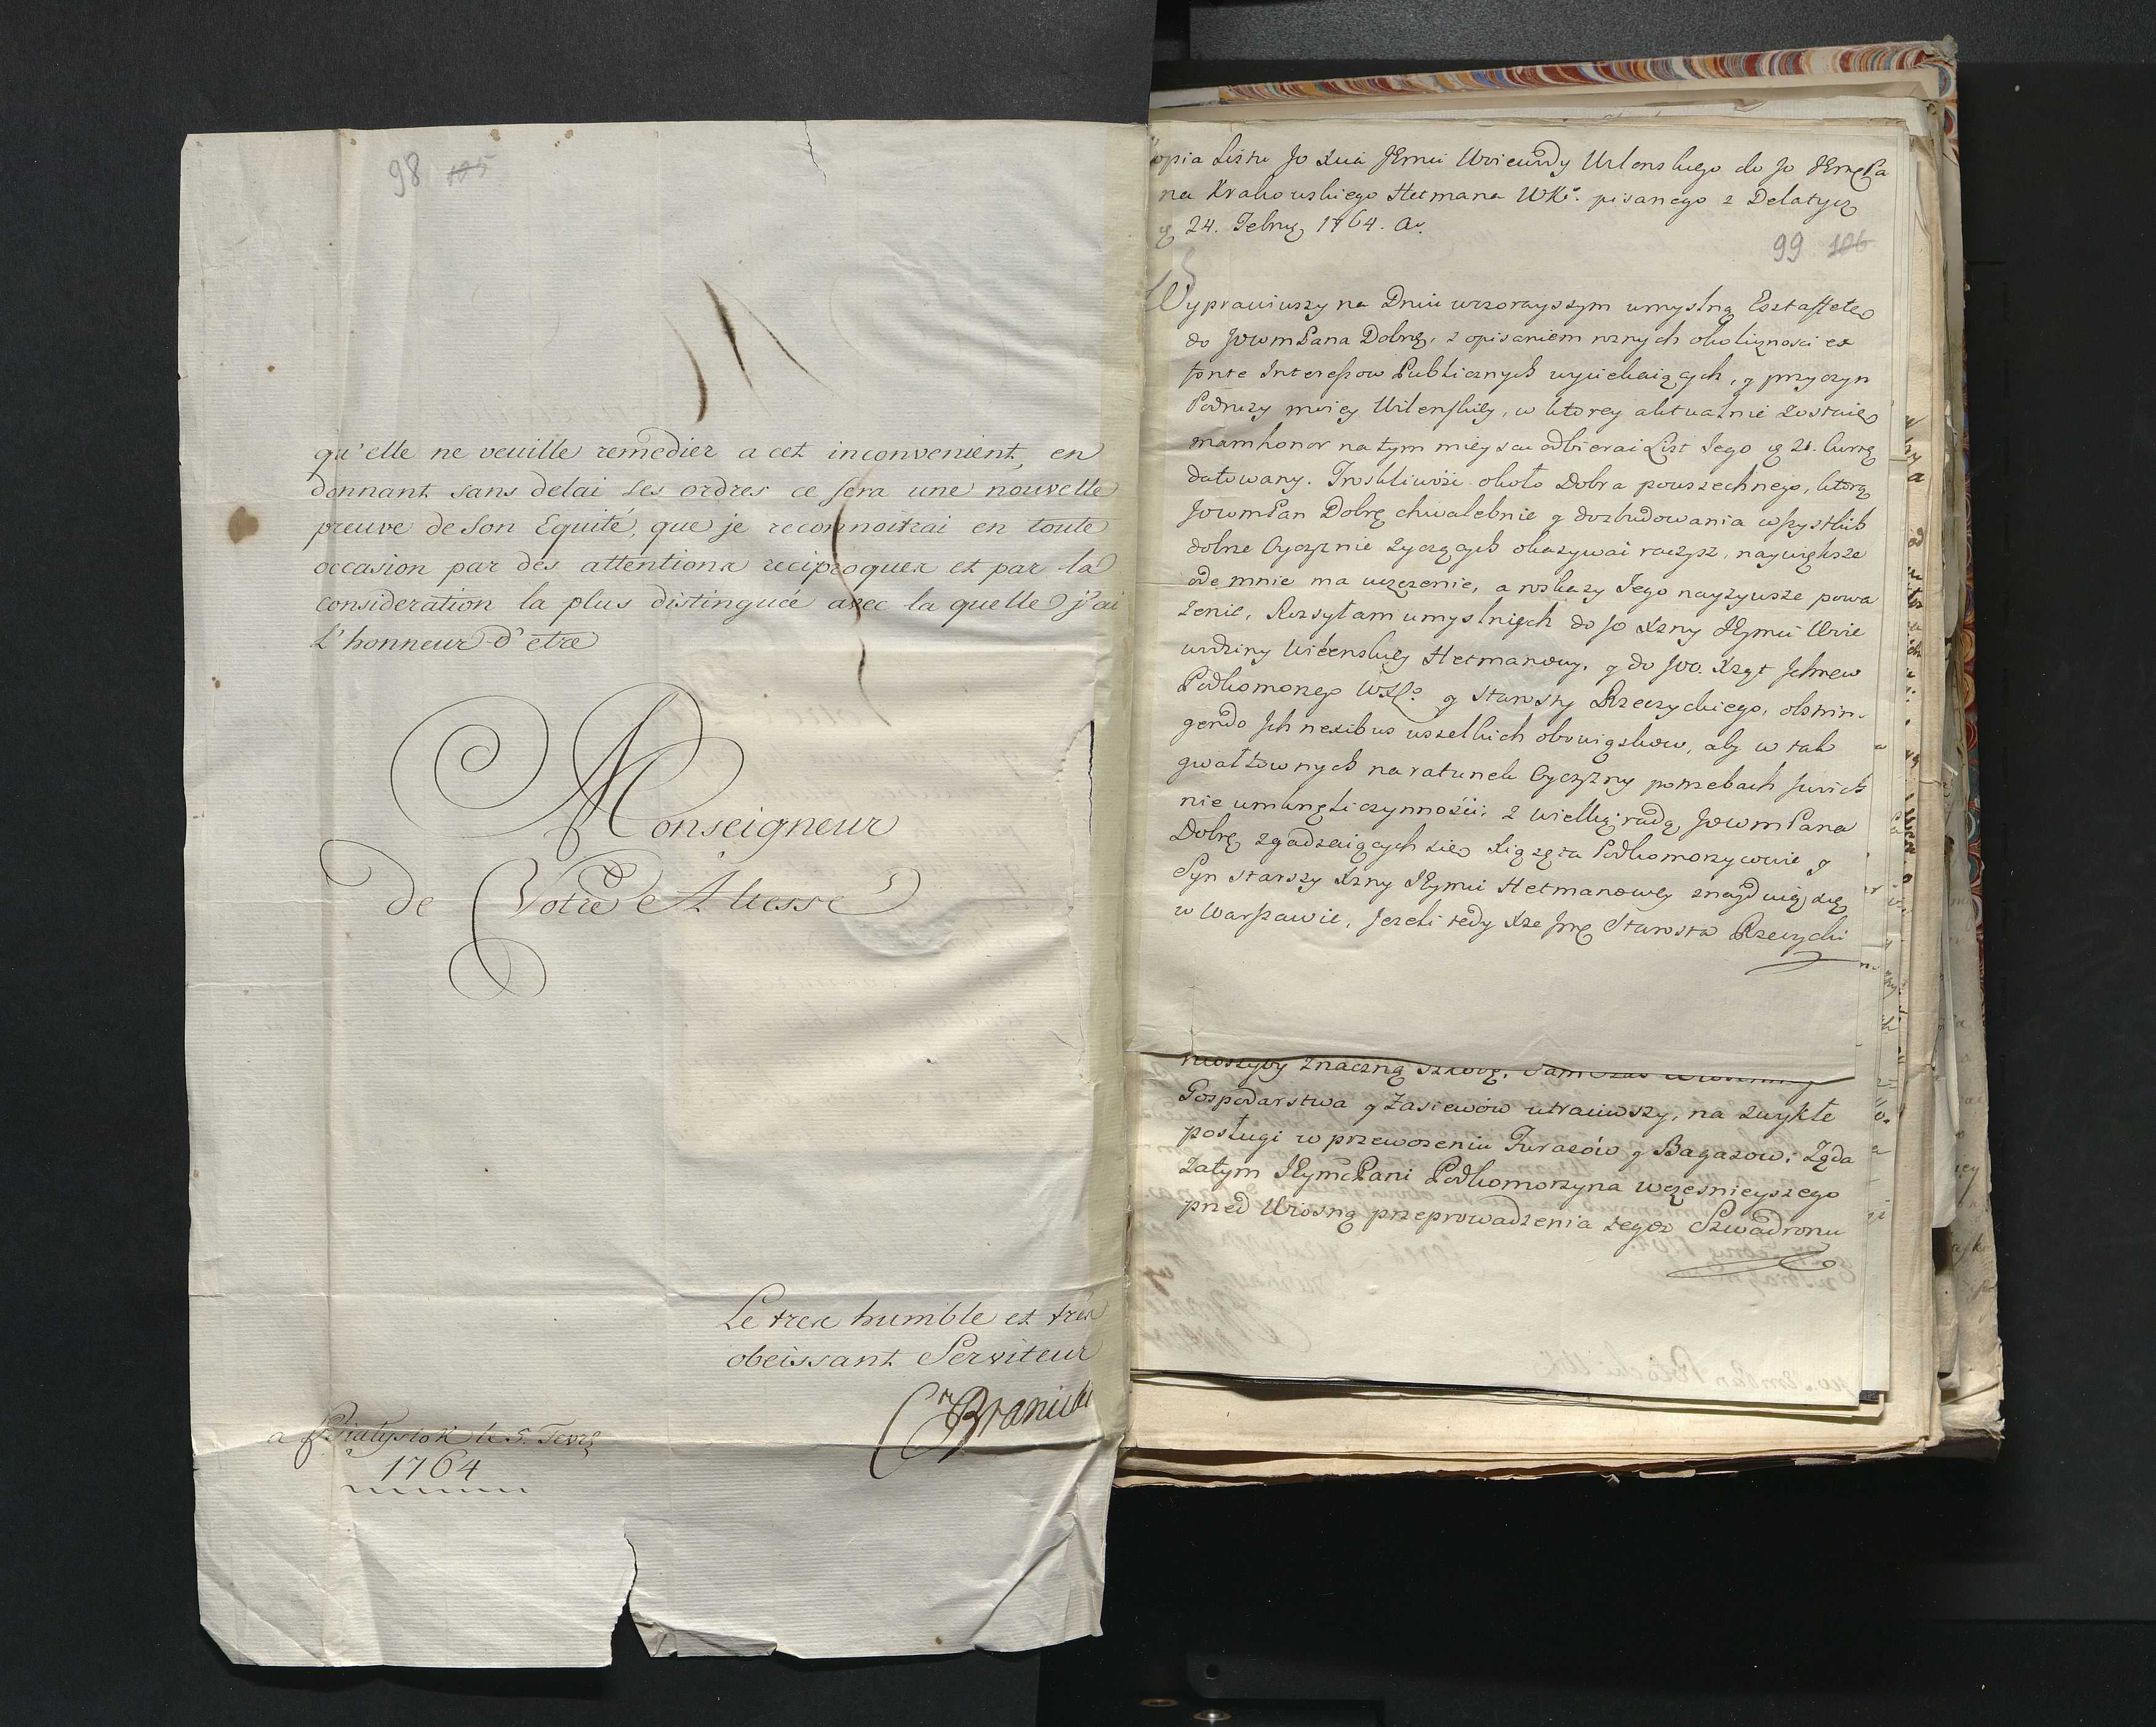 98 105
qu'elle ne veuille remedier a cet inconvenient, en
donnant sans delai Ses ordres ce sera une nouvelle
preuve de Son Equité, que je reconnoitrai en toute
occasion par des attentions reciproques et par la
consideration la plus distinguée avec la quelle j'ai
l'honneur d'etre
Monseigneur
de Votre Altesse
Le tres humble et très
obeissant Serviteur
Branicki
a Białystok le 5. Fevr
1764
opia Listu Jo Xcia JEmci Wojewdy Wilenskiego do Jo JEmę Pa
na Krakowskiego Hetmana WKo. pisanego z Delatycz
24. Febru 1764. Ao.
99 106
Wyprawiwszy na Dniu wczorayszym umyslną Esztaffetę
do JowmPana Dobrę, z opisaniem roznych okolicznosci ex
fonte Interessow Publicznych wyciekaiących, y przyczyn
Podrozy moiey Wilenskiey, w ktorey aktualnie zostaię
mam honor na tym mieyscu odbierać List Jego 21. Curr
datowany. Troskliwość około Dobra powszechnego, ktorą
JowmPan Dobrę chwalebnie y do zbudowania wszystkich
dobrze Oyczyznie życzących okazywać raczysz, naywiększe
ode mnie ma uczczenie, a rozkazy Jego nayżywsze powa
żenie, Rozsyłam umyslnych do Jo Xzny JEymci Woie
wdziny Wilenskiey Hetmanowy, y do JOO. Xżąt Jchmcw
Podkomorzego WXLo. y Starosty Rzeczyckiego, obstrin-
gendo Jch nexibus wszelkich obowiązkow, aby w tak
gwałtownych na ratunek Oyczyzny potrzebach swoich
nie umknęli czynności, z wielką radą JowmPana
Dobrę zgadzaiących się Xiążęta Podkomorzycowie y
Syn starszy Xzny JEymci Hetmanowey znayduią się
w Warszawie, Jeżeli tedy Xże Jmć Starosta Rzeczycki
niosłyby znaczną szkodę,
Gospodarstwa y Zasiewów utraciwszy, na zwykłe
posługi w przewożeniu Furażów y Bagażow. Żąda
zatym JEymcPani Podkomorzyna wcześnieyszego
przed Wiosną przeprowadzenia tegoż Szwadronu